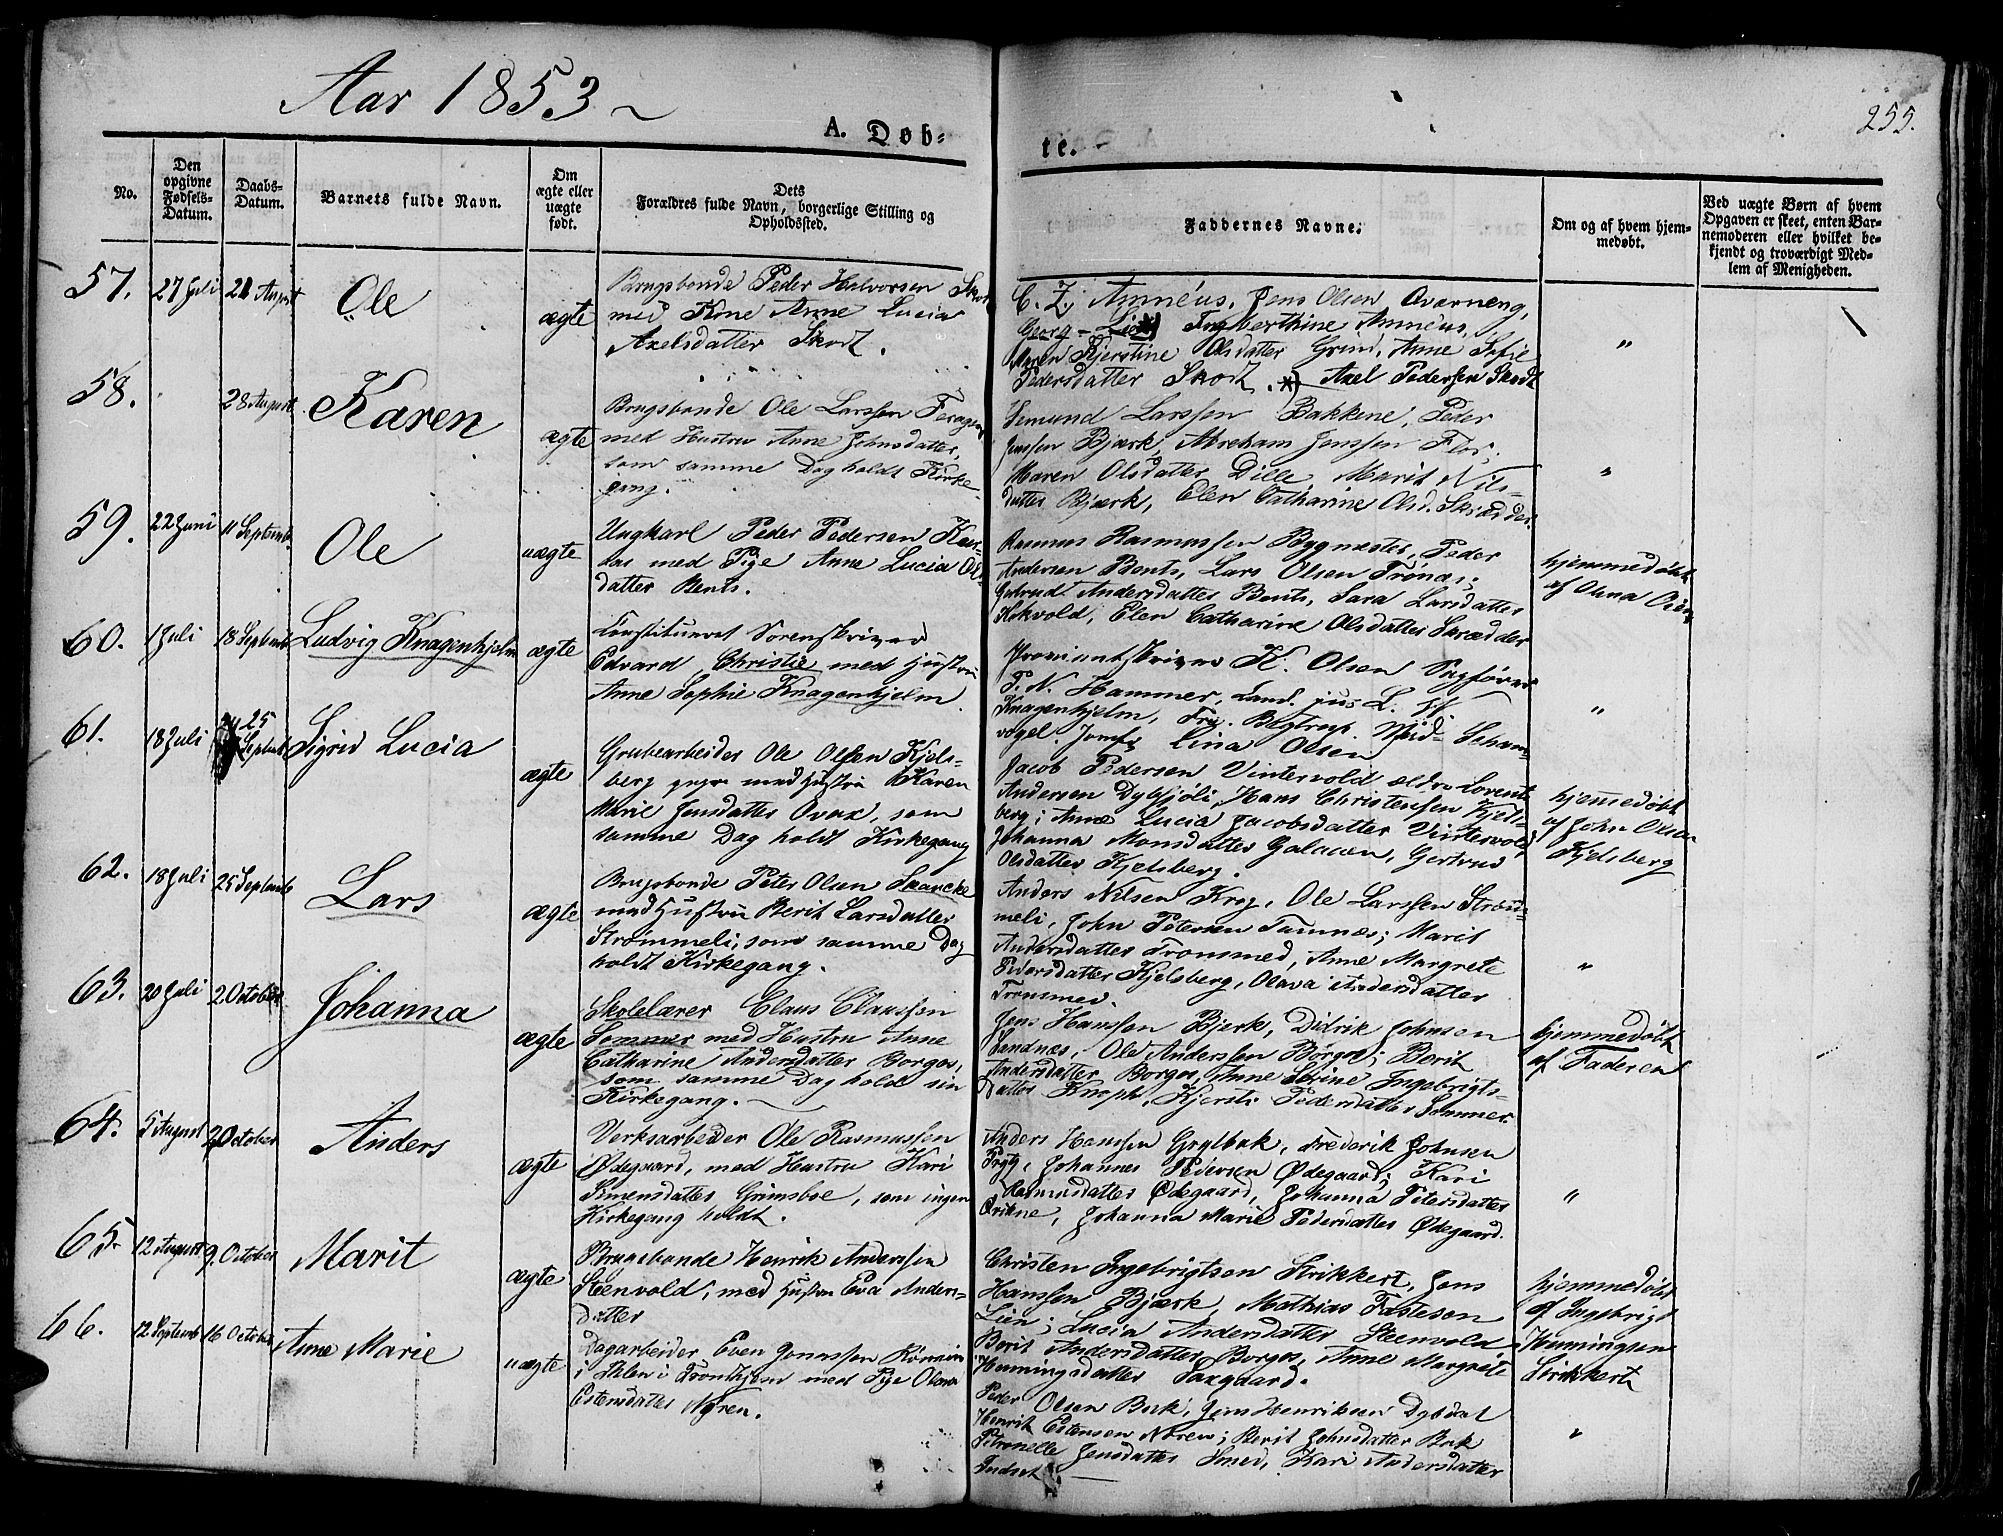 Aar 1853
255.
A. Døb-
te.
No.
Den opgivne Fødsels-Datum.
Daabs-Datum.
Barnets fulde Navn.
Om ægte eller uægte født.
Dets Forældres fulde Navn, borgerlige Stilling og Opholdssted.
Faddernes Navne.
Om og af hvem hjem-
medøbt.
Ved uægte Børn af hvem
Opgaven er skeet, enten Bar-
nemoderen eller hvilket be-
kjendt og troværdigt Med-
lem af Menigheden.
57. 27 Juli 21 August Ole ægte
Brugsbonde Peder Halvorsen Skott
med Kone Anne Lucia
Axelsdatter Skott.
C. Z. Amnéus, Jens Olsen Qværneng,
Georg Ingberthine Amnéus,
Maren Kjerstine Olsdatter Grind, Anne Sofie
Pedersdatter Skott. *) Axel Pedersen Skott
"
58. 28 August Karen ægte
Brugsbonde Ole Larssen Feragen
med Hustru Anne Johnsdatter,
som samme Dag holdt Kirke-
gang.
Semund Larssen Bakkene, Peder
Jenssen Bjærk, Abraham Jenssen Flor;
Maren Olsdatter Dille, Marit Nils-
datter Bjærk, Elen Catharine Olsd. Skrædder.
"
59. 22 Juni 11 Septemb. Ole uægte
Ungkarl Peder Pedersen
med Pige Anne Lucia Ols-
datter Bents.
Rasmus Rasmussen Bygmester, Peder
Andersen Bents, Lars Olsen Trønæs;
Gertrud Andersdatter Bents, Sara Larsdatter
Hokvold, Elen Catharine Olsdatter Skrædder
hjemmedøbt
af Olava Olsen
60. 1 Juli 18 Septemb Ludvig Knagenhjelm ægte
Constitueret Sorenskriver
Edvard Christie med Hustru
Anne Sophie Knagenhjelm.
Proviantskriver K. Olsen Sagfører
P. N. Hammer, Cand. jus L. W.
Knagenhjelm, Fru Bigtrup, Md. Scham-
vogel, Jomfr Lina Olsen
"
61. 18 Juli 25 Septemb Sigrid Lucia ægte
Grubearbeider Ole Olssen Kjels-
berg med Hustru Karen
Marie Jensdatter Ovax, som
samme Dag holdt Kirkegang
Jacob Pedersen Vintervold ældre Lorents
Andersen Dybsjøli, Hans Christensen Kjels-
berg; Anne Lucia Jacobsdatter Vintervold,
Johanna Monsdatter Galaaen, Gertrud
Olsdatter Kjelsberg.
hjemmedøbt
af John Olsen
Kjelsberg
62. 18 Juli 25 Septemb Lars ægte
Brugsbonde Peter Olsen Skancke
med Hustru Berit Larsdatter
Strømmeli, som samme Dag
holdt Kirkegang.
Anders Nilsen Krog, Ole Larssen Strøm-
meli, John Petersen Tamnæs; Marit
Andersdatter Tronsmed, Anne Margrete
Pedersdatter Kjelsberg, Olava Andersdatter
Tronsmed.
"
63. 20 Juli 2 October Johanna ægte
Skolelærer Claus Claussen
Sommer med Hustru Anne
Catharine Andersdatter Borgos,
som samme Dag holdt sin
Kirkegang.
Jens Hanssen Bjerk, Didrik Johnsen
Sandnæs, Ole Anderssen Borgos; Berit
Andersdatter Borgos, Anne Serine Ingebrigts-
datter Knoph, Kjersti Pedersdatter Sommer.
hjemmedøbt
af Faderen
64. 5 August 2 October Anders ægte
Verksarbeider Ole Rasmussen
Ødegaard, med Hustru Kari
Simensdatter Grimsboe, som ingen
Kirkegang holdt.
Anders Hanssen Grytbak, Frederik Johnsen
Prytz, Johannes Pedersen Ødegaard; Kari
Rasmusdatter Ødegaard, Johanna Petersdatter
Qvikne, Johanna Marie Pedersdatter Ødegaard.
"
65. 12 August 9. October Marit ægte
Brugsbonde Henrik Anderssen
Steenvold, med Hustru Eva Anders-
datter
Christen Ingebrigtsen Strikkert, Jens
Hanssen Bjærk, Mathias Tastesen
Lien; Lucia Andersdatter Steenvold,
Berit Andersdatter Borgos, Anne Margrete
Henningsdatter Saxgaard.
hjemmedøbt
af Ingebrigt
Henningsen
Strikkert
66. 12 Septemb 16 October Anne Marie uægte
Dagarbeider Even Jonassen
i Ihlen i Tronhjem med Pige Olava
Estensdatter Nøren.
Peder Olsen Bæk, Jens Henriksen Dybdal
Henrik Estensen Nøren; Berit Johnsdatter Bæk
Petronelle Jensdatter Smed, Kari Andersdatter
Indset
"